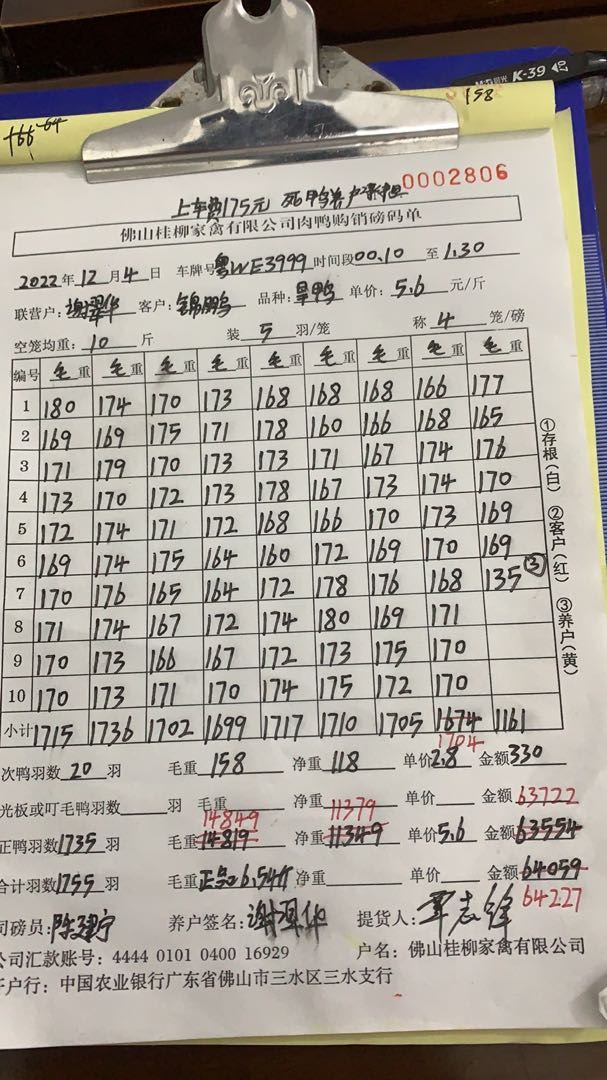 M&G 晨光 K-39
158
166 64
上车费175元 死鸭养户承担
0002806
佛山桂柳家禽有限公司肉鸭购销磅码单
2022年 12月 4日 车牌号 粤WE3999 时间段 00.10 至 1.30
联营户: 谢翠华 客户: 锦鹏 品种: 旱鸭 单价: 5.6 元/斤
空笼均重: 10 斤 装 5 羽/笼 称 4 笼/磅
编号 毛重 毛重 毛重 毛重 毛重 毛重 毛重 毛重 毛重
1 180 174 170 173 168 168 168 166 177
2 169 169 175 171 178 160 166 168 165
3 171 179 170 173 173 171 167 174 176
4 173 170 172 173 178 167 173 174 170
5 172 174 171 172 168 166 170 173 169
6 169 174 175 164 160 172 169 170 169
7 170 176 165 164 172 178 176 168 135 ③
8 171 174 167 172 174 180 169 171
9 170 173 166 167 172 173 175 170
10 170 173 171 170 174 175 172 170
小计 1715 1736 1702 1699 1717 1710 1705 1674 1161
1704
次鸭羽数 20 羽 毛重 158 净重 118 单价 2.8 金额 330
光板或叮毛鸭羽数 羽 毛重 净重 单价 金额 63722
14849 11379
正鸭羽数 1735 羽 毛重 14819 净重 11349 单价 5.6 金额 63554
合计羽数 1755 羽 毛重 正均6.54斤 净重 单价 金额 64059
64227
司磅员: 陈建宁 养户签名: 谢翠华 提货人: 覃志锋
公司汇款账号: 4444 0101 0400 16929 户名: 佛山桂柳家禽有限公司
开户行: 中国农业银行广东省佛山市三水区三水支行
①存根(白) ②客户(红) ③养户(黄)